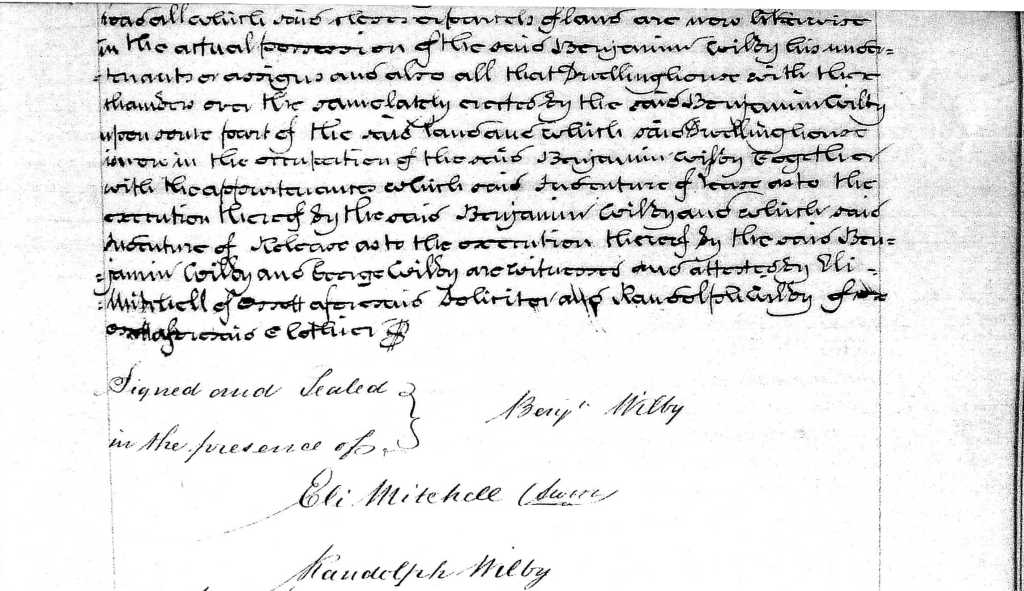 all which said closes or parcels of land are now likewise
in the actual possession of the said Benjamin Wilby his under=
=tenants or assigns and also all that Dwellinghouse with the
chambers over the same lately erected by the said Benjamin Wilby
upon some part of the said land and which said Dwellinghouse
is now in the occupation of the said Benjamin Wilby Together
with the appurtenances which said Indenture of Lease as to the
execution thereof by the said Benjamin Wilby and which said
Indenture of Release as to the execution thereof by the said Ben=
=jamin Wilby and George Wilby are witnessed and attested by Eli
Mitchell of Ossett aforesaid Solicitor and Randolph Wilby of
Ossett aforesaid Clothier
Signed and Sealed
in the presence of
Benjn Wilby
Eli Mitchell (Sworn)
Randolph Wilby